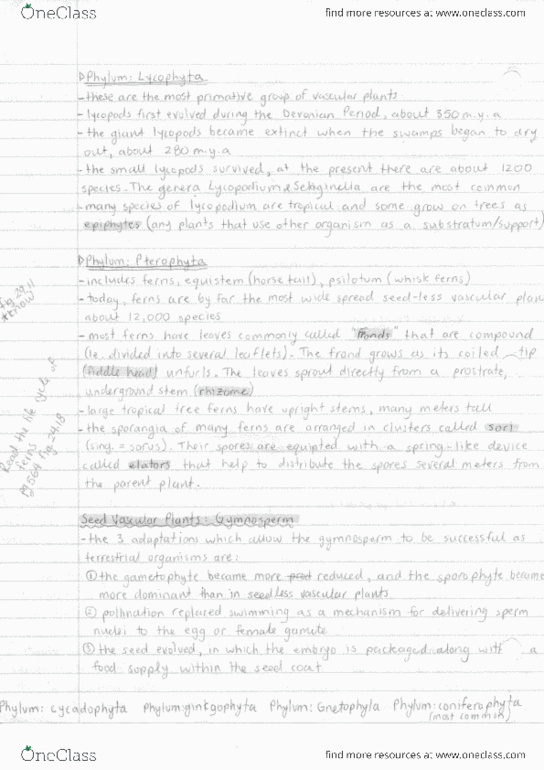 OneClass
find more resources at www.oneclass.com
Phylum: Lycophyta
- these are the most primative group of vascular plants
- lycopods first evolved during the Devonian Period, about 350 m.y.a
- the giant lycopods became extinct when the swamps began to dry
out, about 280 m.y.a
- the small lycopods survived, at the present there are about 1200
species. The genera Lycopodium & Selaginella are the most common
- many species of lycopodium are tropical and some grow on trees as
epiphytes (any plants that use other organism as a substratum/support)
Phylum: Pterophyta
- includes ferns, equistem (horse tail), psilotum (whisk ferns)
- today, ferns are by far the most wide spread seed-less vascular plan
about 12,000 species
- most ferns have leaves commonly called "fronds" that are compound
(ie. divided into several leaflets). The frond grows as its coiled tip
(fiddle head) unfurls. The leaves sprout directly from a prostrate,
underground stem (rhizome)
- large tropical tree ferns have upright stems, many meters tall
- the sporangia of many ferns are arranged in clusters called sori
(sing. = sorus). Their spores are equipted with a spring-like device
called elators that help to distribute the spores several meters from
the parent plant.
fig 29.11
*know
Read the life cycle of
ferns
pg 564 fig. 29.13
Seed Vascular Plants: Gymnosperm
- the 3 adaptations which allow the gymnosperm to be successful as
terrestrial organisms are:
① the gametophyte became more reduced, and the sporophyte became
more dominant than in seedless vascular plants
② pollination replaced swimming as a mechanism for delivering sperm
nuclei to the egg or female gamute
③ the seed evolved, in which the embryo is packaged along with a
food supply within the seed coat
Phylum: Lycadophyta Phylum: ginkgophyta Phylum: Gnetophyla Phylum: coniferophyta
(most common)
OneClass
find more resources at www.oneclass.com